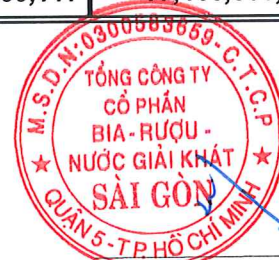 M.S.D.N:0300583659-C.T.C.P
TỔNG CÔNG TY
CỔ PHẦN
BIA-RƯỢU-
NƯỚC GIẢI KHÁT
SÀI GÒN
QUẬN 5-T.P. HỒ CHÍ MINH